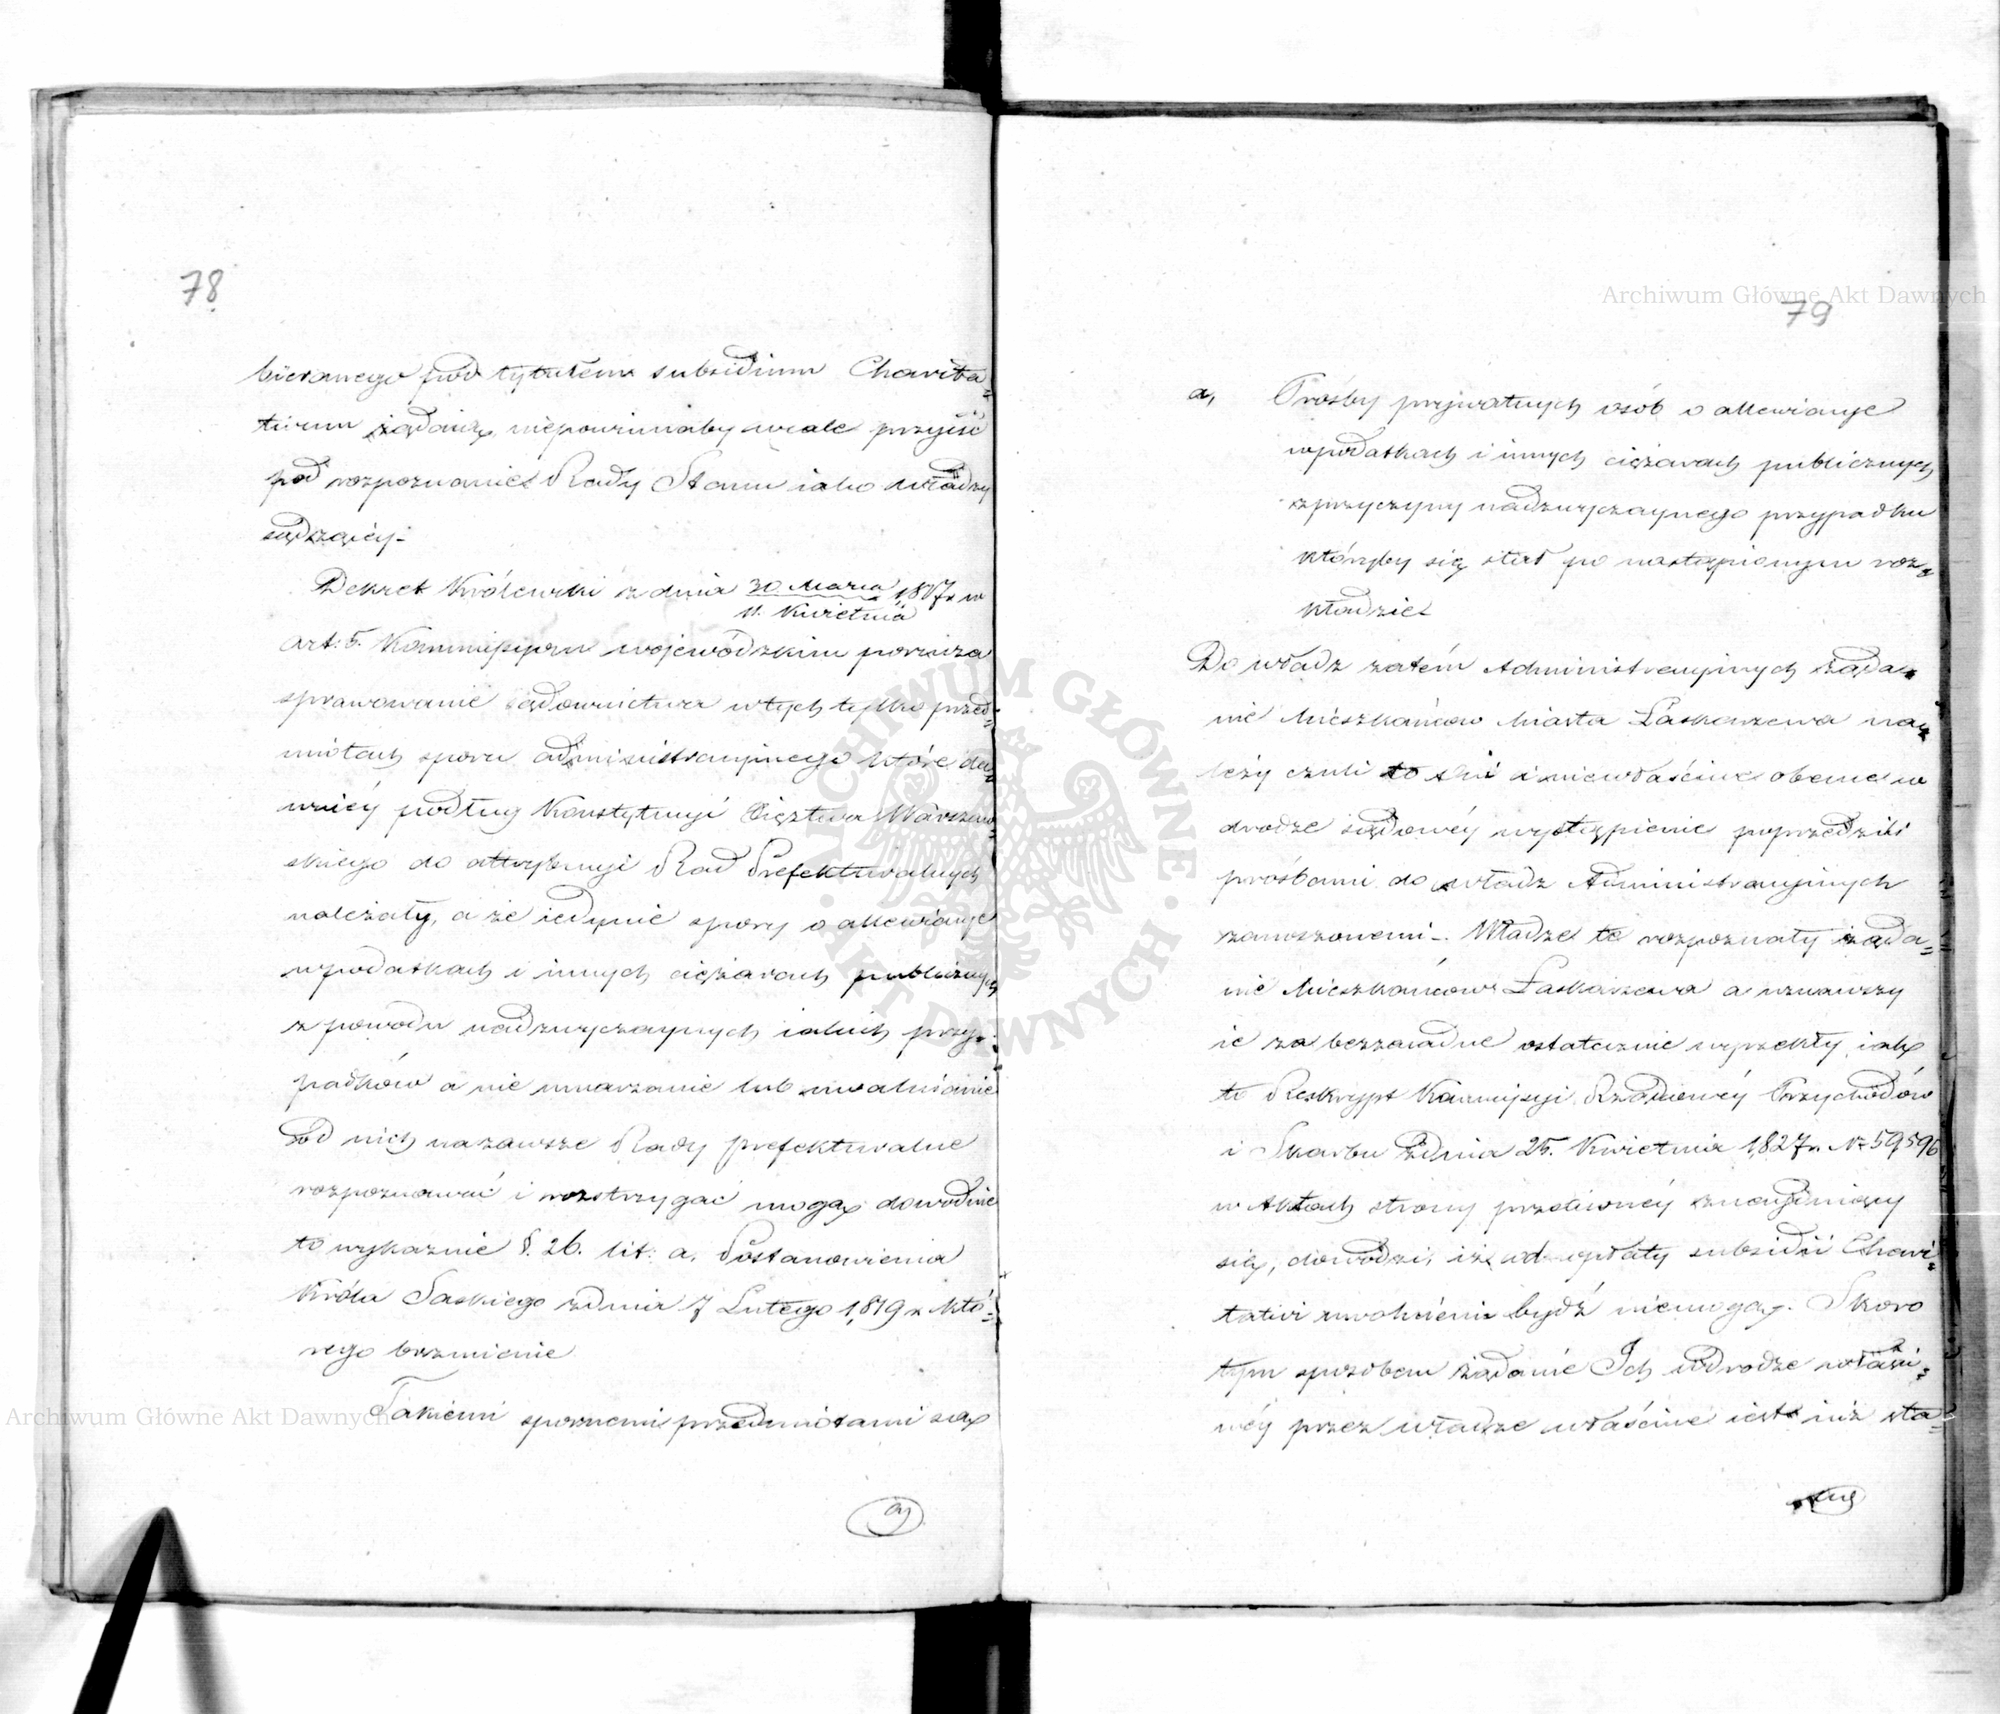 78
bieranego pod tytułem subsidium Charita=
tivum żądaią, niepowinnaby wcale przyiść
pod rozpoznanie Rady Stanu iako władzy
sądzącéj.
Dekret Królewski z dnia 30 Marca / 11. Kwietnia 1817 r. w
art: 5. Kommissyom wojewódzkim porucza
sprawowanie sądownictwa w tych tylko przed=
miotach sporu administracyinego które da=
wniéy podług Konstytucyi Xięztwa Warszaw=
skiego do attrybucyi Rad Prefekturalnych
należały, a że iedynie spory o allewiacye
w podatkach i innych ciężarach publicznych
z powodu nadzwyczaynych iakich przy=
padków a nie umarzanie lub uwalnianie
od nich nazawsze Rady prefekturalne
rozpoznawać i rozstrzygać mogą dowodnie
to wykaznie §. 26. lit: a. Postanowienia
Króla Saskiego z dnia 7 Lutego 1819 r. któ=
rego brzmienie
Takiemi spornemi przedmiotami są
a,
79
a, Prośby prywatnych osób o allewiacye
w podatkach i innych ciężarach publicznych
z przyczyny nadzwyczaynego przypadku
któryby się stał po nastąpionym roz=
kładzie
Do władz zatém Administracyinych żąda=
nie Mieszkańców Miasta Łaskarzewa na=
leży czuli to Oni i niewłaściwe obecne w
drodze sądowéy wystąpienie poprzedzili
prośbami do władz Administracyinych
zanoszonemi. Władze te rozpoznały żąda=
nie Mieszkańców Łaskarzewa a uznawszy
ie za bezzasadne ostatecznie wyrzekły, iak
to Reskrypt Kommissyi Rządowéy Przychodów
i Skarbu z dnia 25. Kwietnia 1827 r. Nr 59596
w Aktach strony przeciwnéy znayduiący
się, dowodzi, iż od opłaty subsidii Chari=
tativi uwolnieni bydź niemogą. Skoro
tym sposobem żądanie Ich w drodze właści=
wéy przez władze właściwe iest iuż sta=